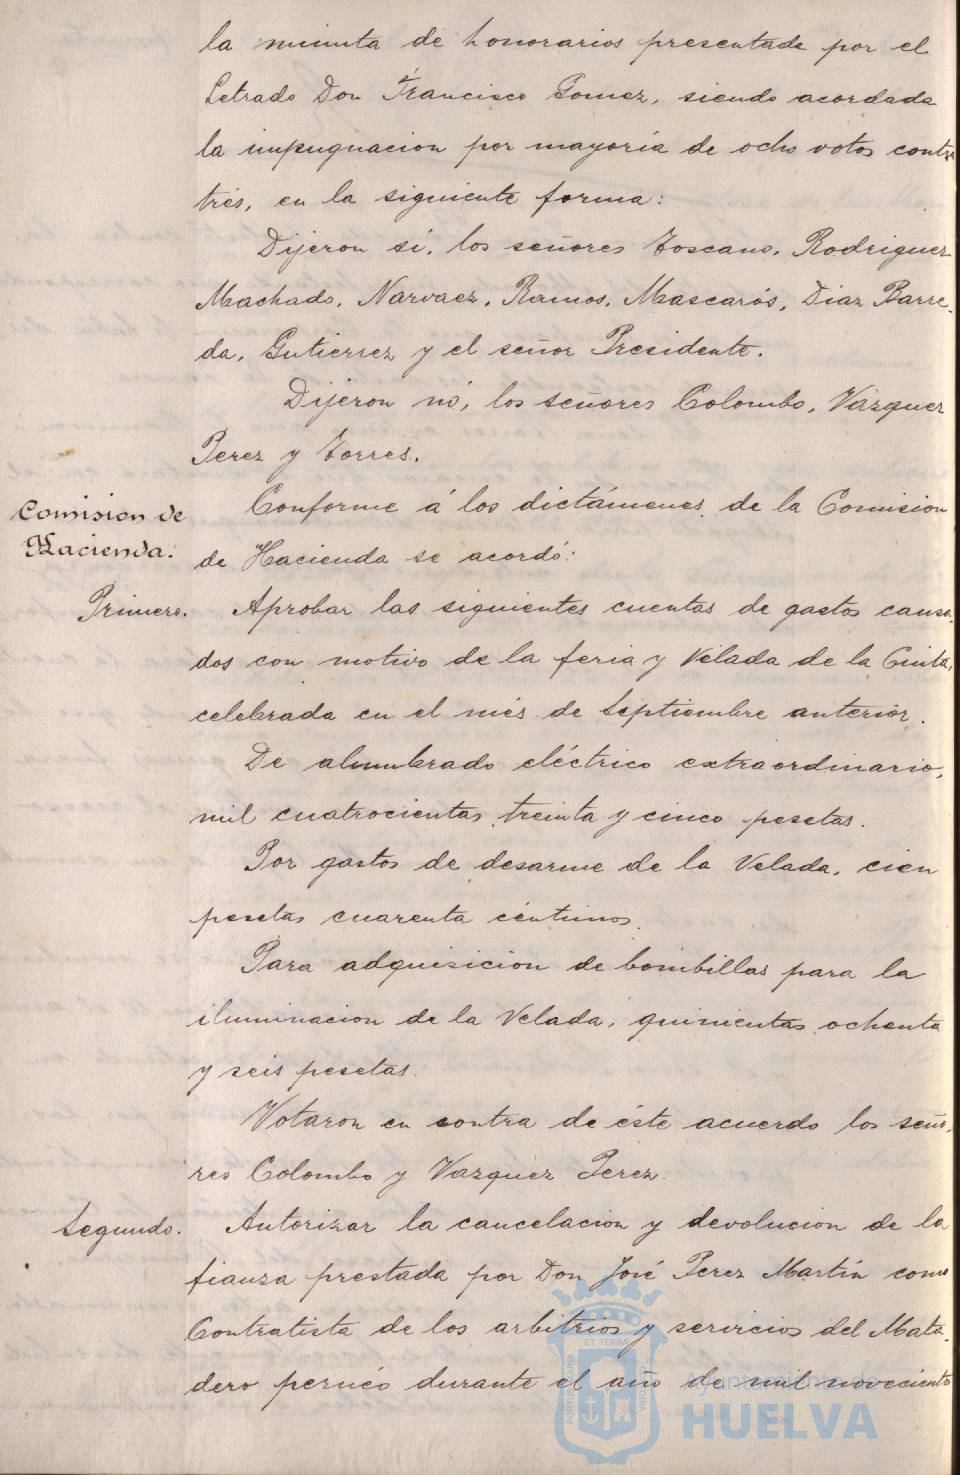 la minuta de honorarios presentada por el
Letrado Don Francisco Gomez, siendo acordada
la impugnacion por mayoría de ocho votos contra
trés, en la siguiente forma:
Dijeron sí, los señores Toscano, Rodriguez
Machado, Narvaez, Ramos, Mascarós, Diaz Barre-
da, Gutierrez y el señor Presidente.
Dijeron nó, los señores Colombo, Vazquez
Perez y Torres.
Comision de
Hacienda.
Conforme á los dictámenes de la Comision
de Hacienda se acordó:
Primero.
Aprobar las siguientes cuentas de gastos causa-
dos con motivo de la feria y Velada de la Cinta,
celebrada en el més de Septiembre anterior.
De alumbrado eléctrico extraordinario,
mil cuatrocientas treinta y cinco pesetas.
Por gastos de desarme de la Velada, cien
pesetas cuarenta céntimos.
Para adquisicion de bombillas para la
iluminacion de la Velada, quinientas ochenta
y seis pesetas.
Votaron en contra de éste acuerdo los seño-
res Colombo y Vazquez Perez.
Segundo.
Autorizar la cancelacion y devolucion de la
fianza prestada por Don José Perez Martín como
Contratista de los arbitrios y servicios del Mata-
dero durante el año de mil novecientos
Ayuntamiento de
HUELVA